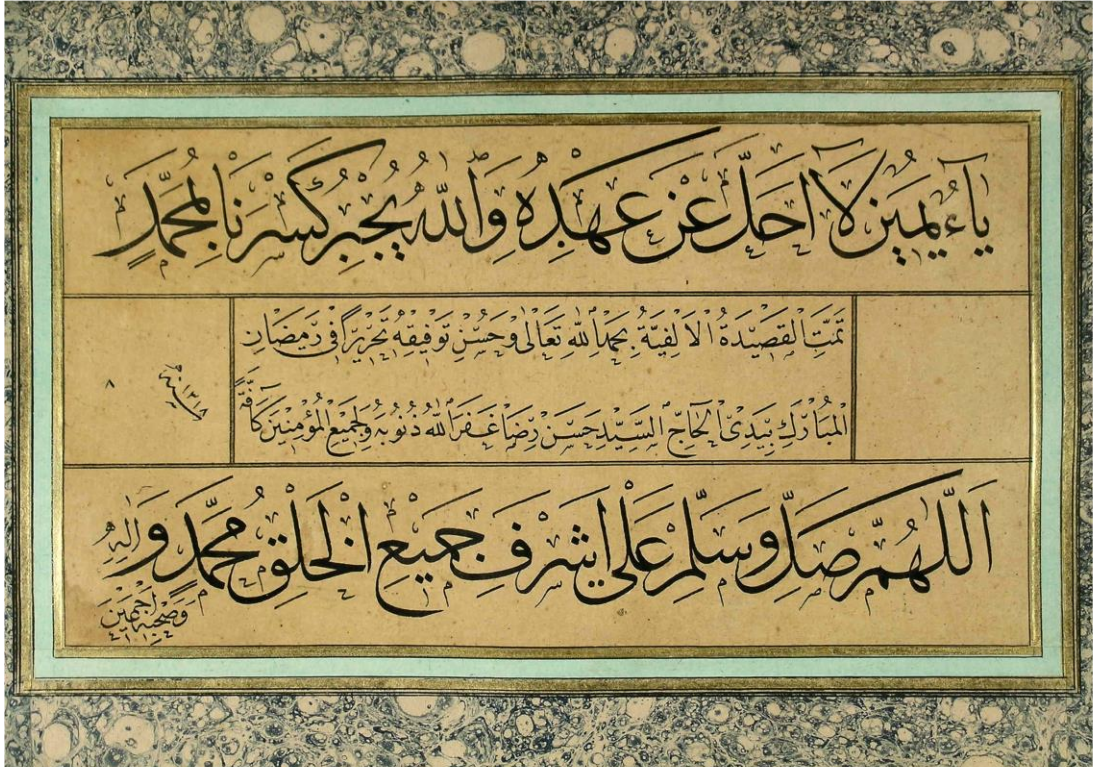 يَاءُ يَمِينٍ لَا اَحَلَّ عَنْ عَهْدِهِ وَاللّٰهُ يُجْبِرُ كَسْرَنَا بِمُحَمَّدٍ
تَمَّتِ الْقَصِيْدَةُ الْاَلْفِيَّةُ بِحَمْدِ اللّٰهِ تَعَالٰى وَحُسْنِ تَوْفِيقِهِ تَحْرِيْرًا فِى رَمَضَانِ
الْمُبَارَكِ بِيَدِىْ الْحَاجِّ السَّيِّدِ حَسَنْ رِضَا غَفَرَ اللّٰهُ ذُنُوبَهُ وَلِجَمِيْعِ الْمُؤْمِنِيْنَ كَافَّةً
سنة ١٣١٨
٨
اَللّٰهُمَّ صَلِّ وَسَلِّمْ عَلٰى اَشْرَفِ جَمِيْعِ الْخَلْقِ مُحَمَّدٍ وَاٰلِهِ
وَصَحْبِهِ اَجْمَعِيْنَ